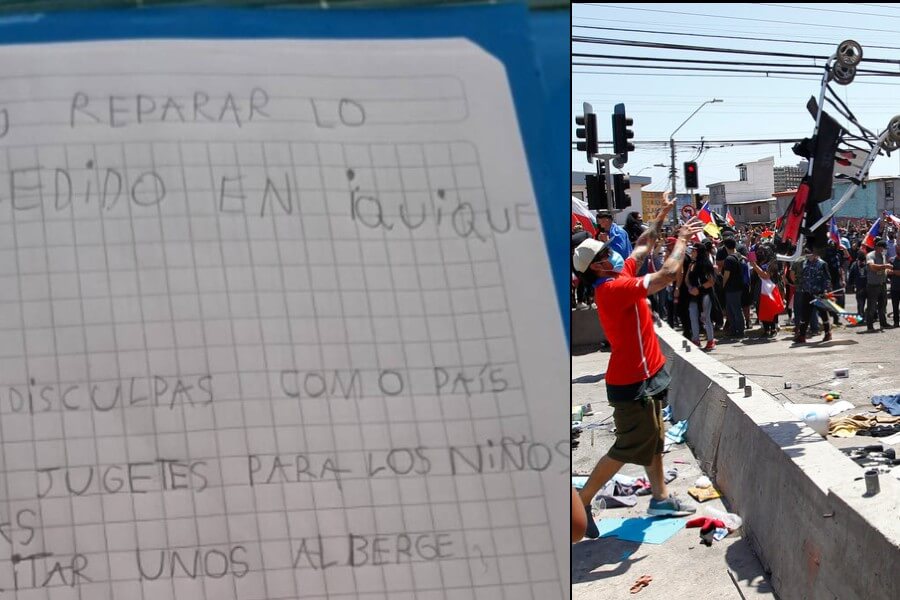 REPARAR LO
EDIDO EN iQUiQUE
DISCULPAS COMO PAÍS
JUGETES PARA LOS NiÑOS
ITAR UNOS ALBERGE